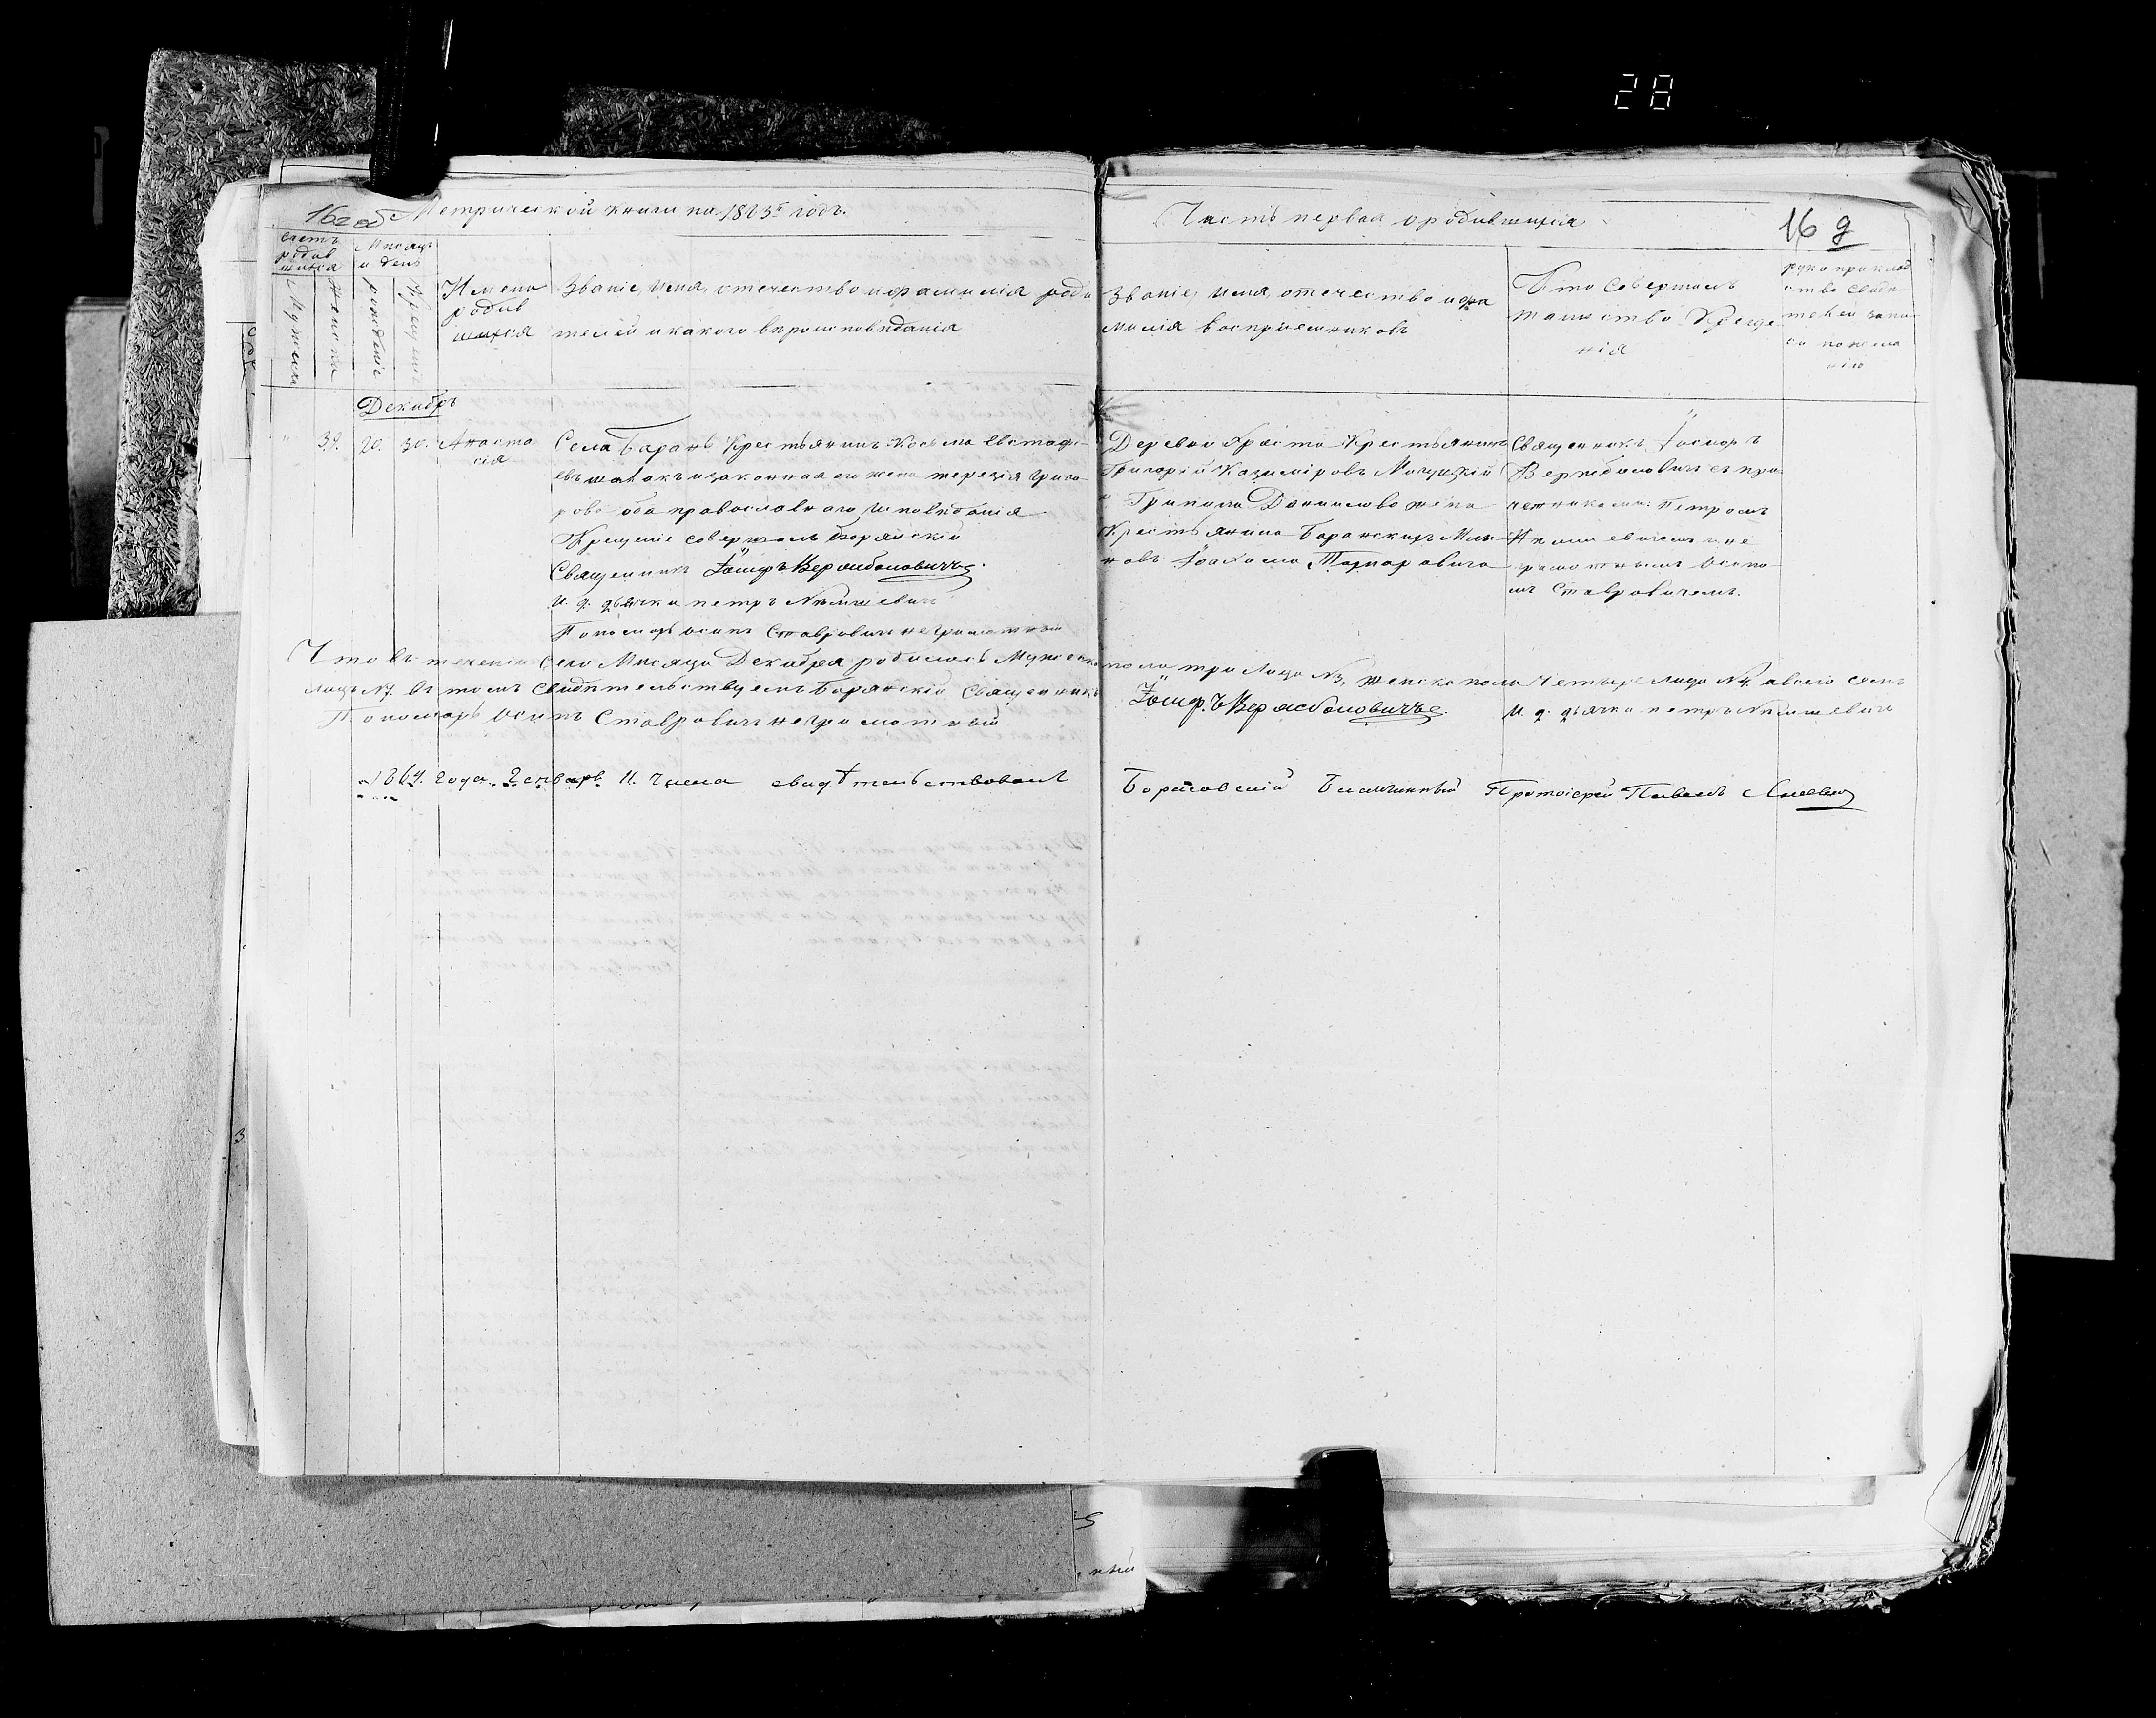 28
16г об Метрической книги на 1863й годъ.
Часть первая о родившихся
16 д
Счетъ родив шихся
Мужеска
Женска
Месяцъ и день
рожденіе
Крещенія
Имена родив шихся
Званіе, имя, отечество и фамилія роди
телей и какого вероисповеданія
Званіе, имя, отечество и фа
милія воспріемниковъ
Кто совершалъ
таинство Креще
нія
руко приклад
ство свиде
телей запи
си по жела
нію
Декабрь
39. 20. 30. Анаста
сія
Села Барань Крестьянинъ Косьма Евстафі
евъ и законная его жена Терезія Григо
рова оба православнаго исповеданія
Крещеніе совершалъ Барянскій
Священникъ Іосифъ Вержболовичъ.
И. д. дьячка Петръ
Пономарь Осипъ Ставровичъ неграмотный
Деревни Крестьянинъ
Григорій Казиміровъ
и Данилова жена
Крестьянина Баранскихъ
новъ Іоакима
Священникъ Іосифъ
Вержболовичъ съ при
четниками: Петромъ
и не
грамотнымъ Осипо
мъ Ставровичемъ.
Что въ теченіи сего Месяца Декабря родилось Мужеска пола три лица №3, женска пола четыре лица №4. а всего семь
лицъ №7. Въ томъ свидетельствуемъ Барянскій Священникъ Іосифъ Вержболовичъ. И. д. дьячка Петръ
Пономарь Осипъ Ставровичъ неграмотный
1864. года. Января. 11. числа свидѣтельствовалъ Борисовскій Благочинный Протоіерей Павелъ
3
ный